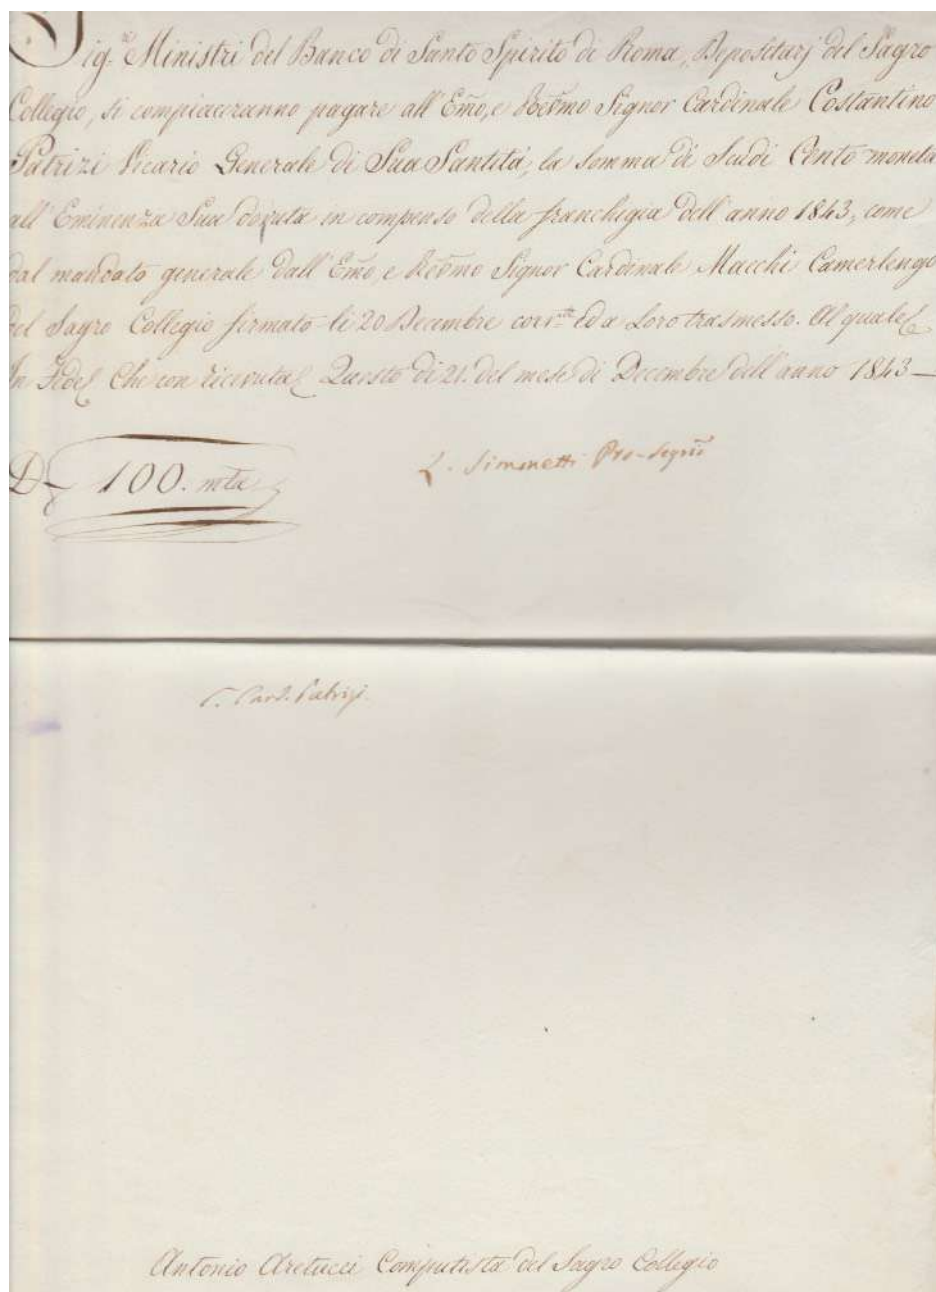 Sig.ri Ministri del Banco di Santo Spirito di Roma, Depositarj del Sagro
Collegio, si compiaceranno pagare all'Emo, e Rēmo Signor Cardinale Costantino
Patrizi Vicario Generale di Sua Santità, la somma di Scudi Cento moneta
all'Eminenza Sua dovuta in compenso della franchigia dell'anno 1843, come
dal mandato generale dall'Emo, e Rēmo Signor Cardinale Macchi Camerlengo
del Sagro Collegio firmato li 20 Decembre corr.te ed a Loro trasmesso. Al quale
In Fede Che con ricevuta Questo dì 21. del mese di Decembre dell'anno 1843 —
D 100. mta
L. Simonetti Pro-Segrio
C. Card. Patrizi.
Antonio Aretucci Computista del Sagro Collegio